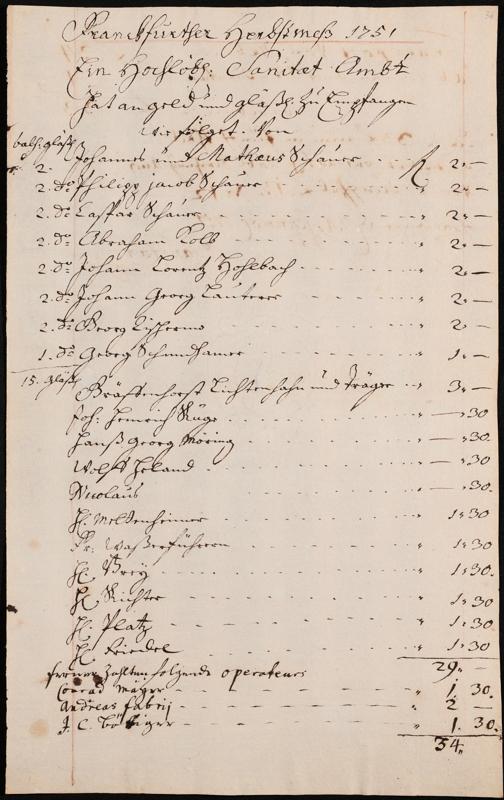 Franckfurther Herbstmeß 1751
Ein Hochlöbl: Sanitæt Ambt
hat an geld und gläßl. zu Empfangen
wie folget. Von
bals: gläßl.
2. Johannes und Mathæus Schauer - - - f 2„—
2. do Philipp Jacob Schauer - - - „ 2„—
2. do Caspar Schauer - - - „ 2„—
2. do Abraham Kolb - - - „ 2„—
2. do Johann Lorentz Hohlbach - - - „ 2„—
2. do Johann Georg Lauterer - - - „ 2„—
2. do Georg - - - „ 2„—
1. do Georg - - - „ 1„—
15. gläßl.
Gräffenhorst Lichtenhahn und Träger - - „ 3„—
Joh: Henrich Kluge - - - „ —„30
Hanß Georg Moring - - - „ —„30.
Wolff Heland - - - „ —„30
Nicolaus - - - „ —„30.
H. Meltenheimer - - - „ 1„30
Fr: Waßerführerin - - - „ 1„30
H. Frey - - - „ 1„30.
H. Richter - - - „ 1„30
H. Platz - - - „ 1„30.
H. Friedel - - - „ 1„30
29„—
ferner Zahlten folgende operateurs
Conrad Mäyer - - - „ 1. 30.
Andreas Fabrij - - - „ 2 —
J. C. - - - „ 1. 30.
34„